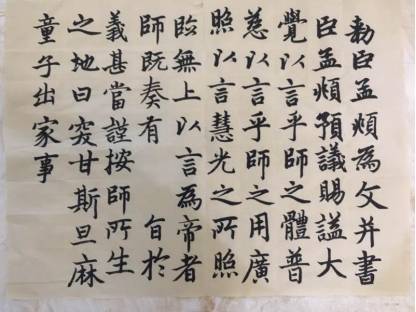 勅臣孟頫為文并書
臣孟頫預議賜謚大
覺以言乎師之體普
慈以言乎師之用廣
照以言慧光之所照
臨無上以言為帝者
師既奏有 旨於
義甚當謹按師所生
之地曰突甘斯旦麻
童子出家事